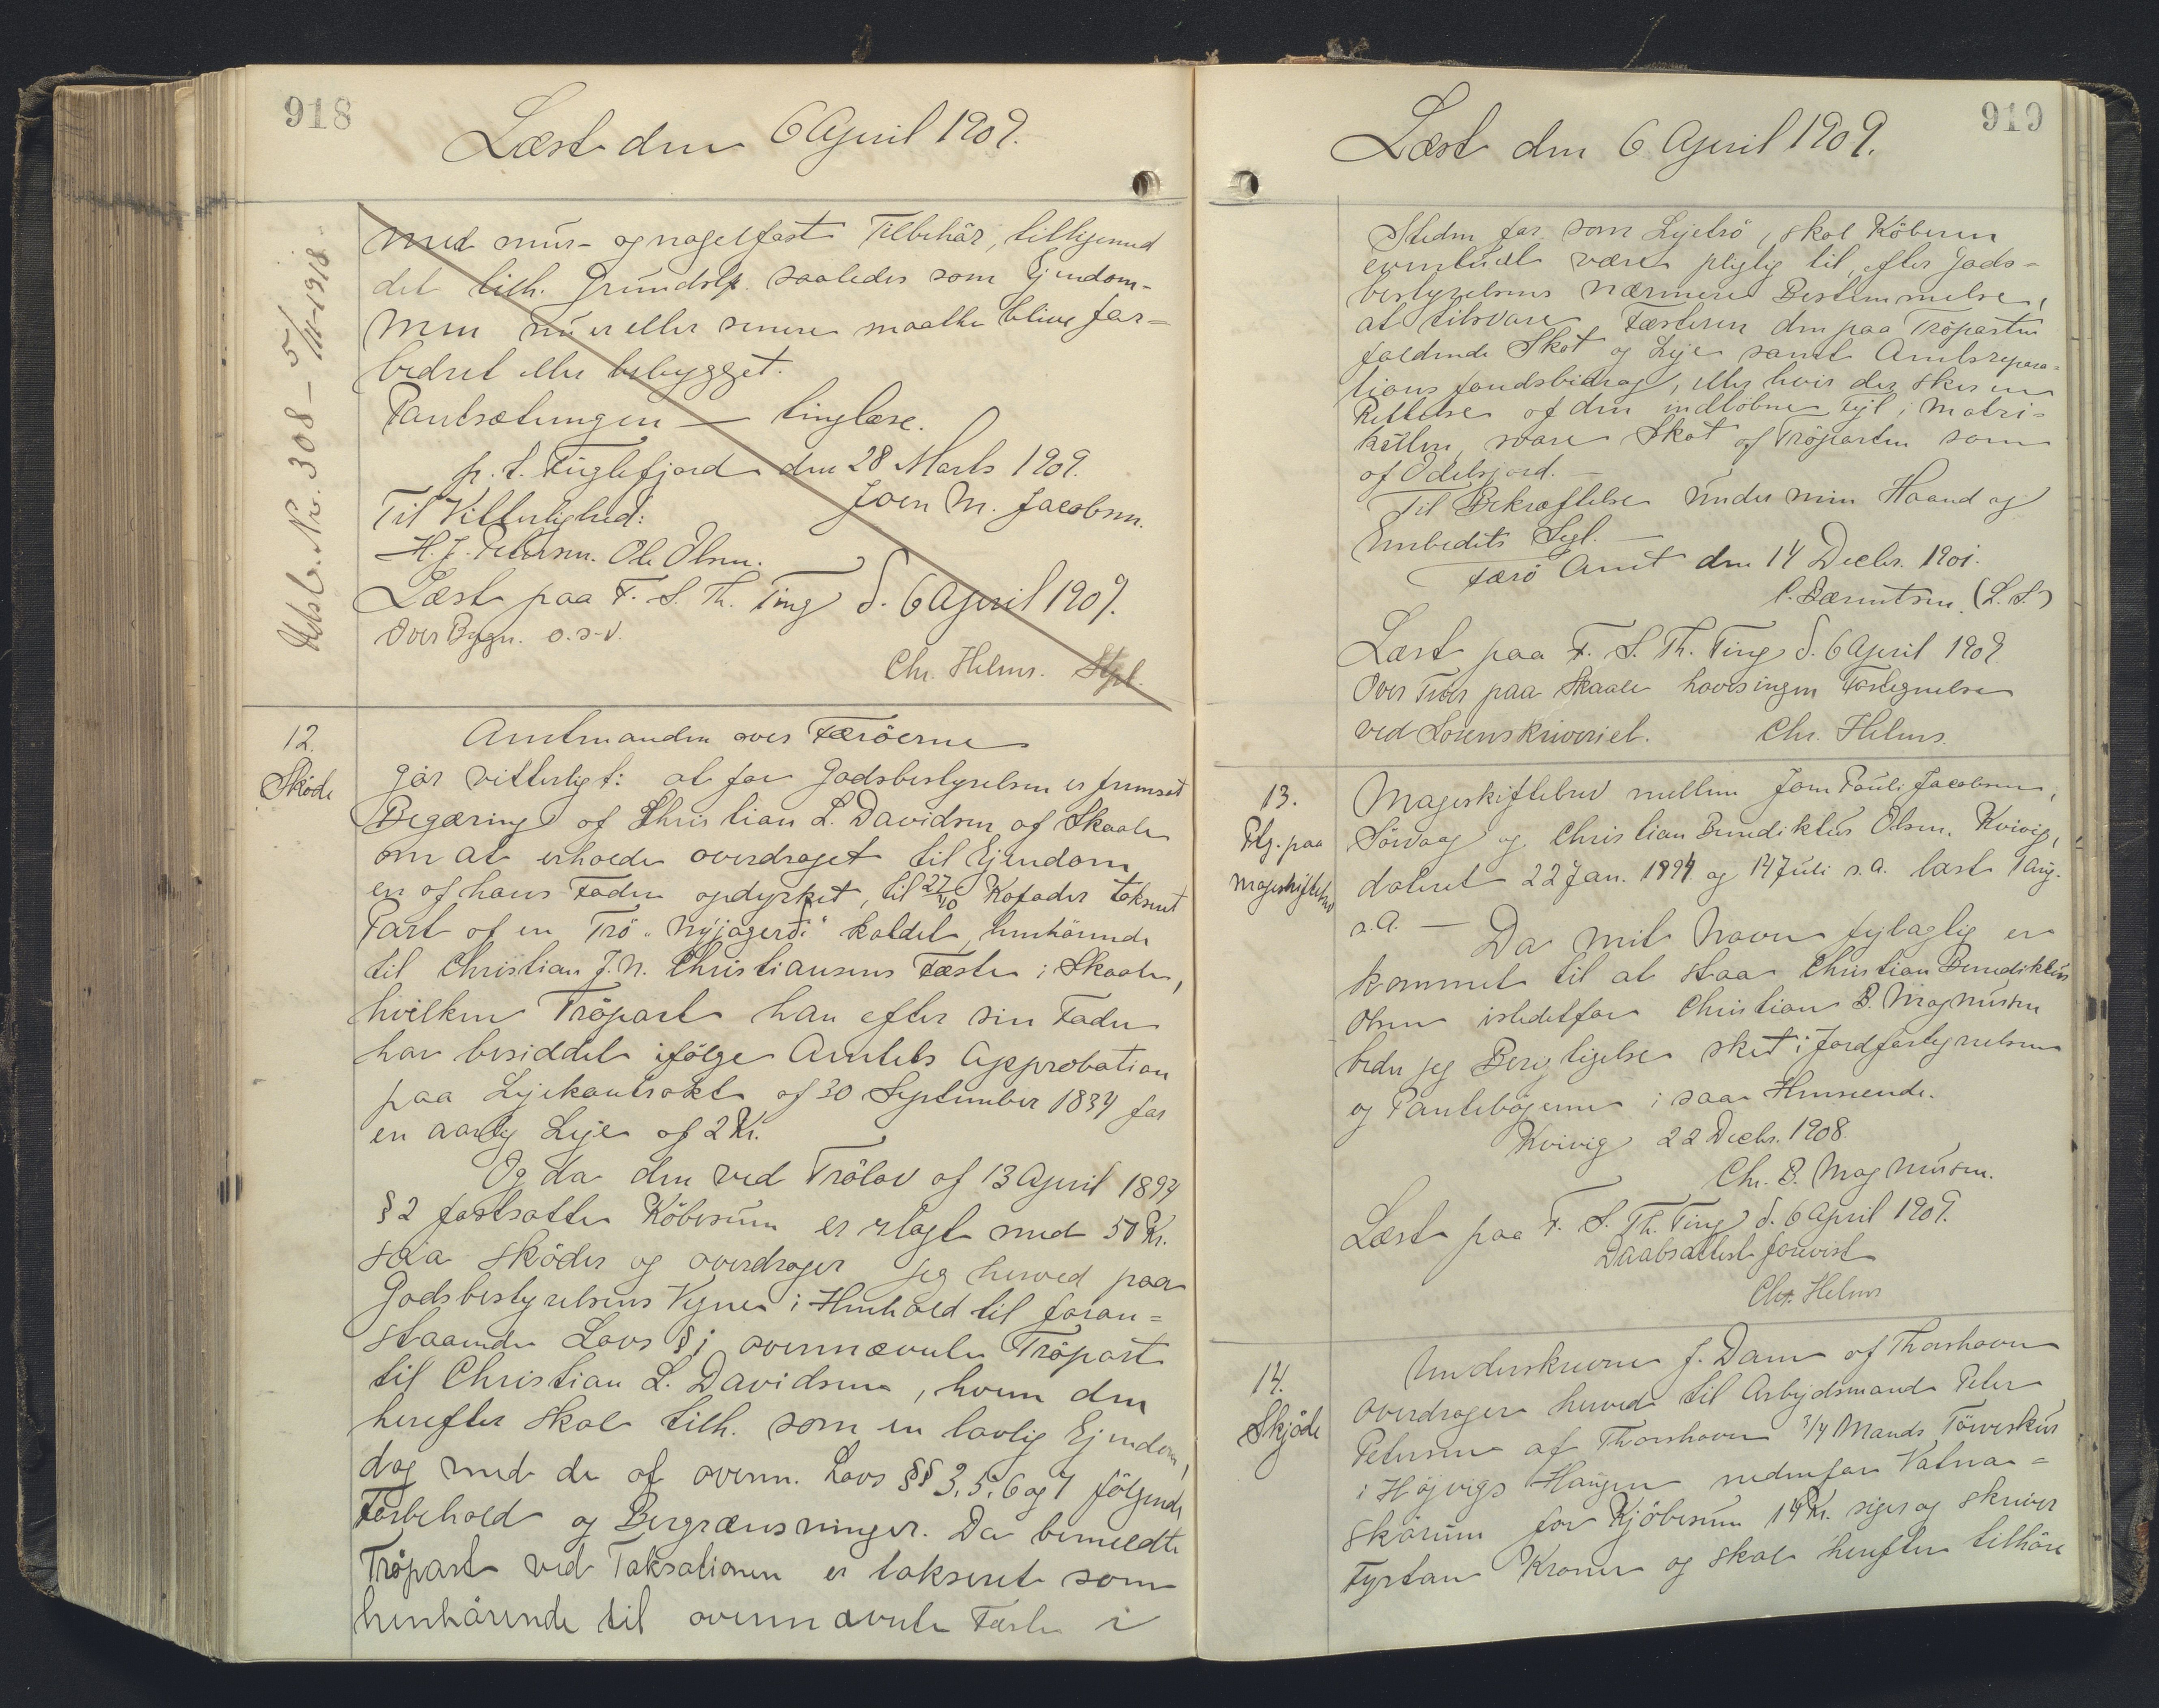 918
Læst den 6 April 1909.
Udsl. Nr. 308 – 5/11-1918
med mur- og nagelfast Tilbehör, tilligemed
det tilh. Grundstk. saaledes som Ejendom-
men nu er eller senere maatte blive for-
bedret eller bebygget.
Pantsætningen — tinglæse.
p. t. Fuglefjord den 28 Marts 1909.
Joen M. Jacobsen.
Til Vitterlighed:
H. J. Petersen. Ole Olsen.
Læst paa F. S. Th. Ting d. 6 April 1909.
Over Bygn. o. s. v.
Chr. Helms. Stpl.
12.
Sköde
Amtmanden over Færöerne
gör vitterligt: at for Godsbestyrelsen er fremsat
Begæring af Christian L. Davidsen af Skaale
om at erholde overdraget til Ejendom
en af hans Fader opdyrket, til 27/40 Kofoder takseret
Part af en Trö "Nyjagerði" kaldet, henhörende
til Christian J. N. Christiansens Fæste i Skaale,
hvilken Tröpart han efter sin Fader
har besiddet ifölge Amtets Approbation
paa Lejekontrakt af 30 September 1834 for
en aarlig Leje af 2 Kr.
Og da den ved Trölov af 13 April 1894
§ 2 fastsatte Köbesum er erlagt med 50 Kr.
saa sköder og overdrager jeg herved paa
Godsbestyrelsens Vegne i Henhold til foran=
staaende Lovs § 1 ovennævnte Tröpart
til Christian L. Davidsen, hvem den
herefter skal tilh. som en lovlig Ejendom,
dog med de af ovenn. Lovs §§ 3, 5, 6 og 7 fölgende
Forbehold og Bergrænsninger. Da bemeldte
Tröpart ved Taksationen er takseret som
henhörende til ovennævnte Fæste i
919
Læst den 6 April 1909.
Steden for som Lejetrö, skal Köberen
eventuelt være pligtig til, efter Gods-
bestyrelsens nærmere Bestemmelse,
at tilsvare Fæsteren den paa Tröparten
faldende Skat og Leje samt Amtsrepara-
tionsfondsbidrag, eller hvis der skes en
Rettelse af den indlöbne Fejl i Matri-
kulen, svare Skat af Tröparten som
af Odelsjord. —
Til Bekræftelse under min Haand og
Embedets Segl. —
Færö Amt den 14 Decbr. 1901.
C. Bærentsen. (L. S.)
Læst paa F. S. Th. Ting d. 6 April 1909
Over Tröer paa Skaale haves ingen Fortegnelse
ved Sorenskriveriet. Chr. Helms.
13.
Ptg. paa
Mageskiftebrev
Mageskiftebrev mellem Jom Pauli Jacobsen,
Sörvaag og Christian Benediktus Olsen, Kvivig,
dateret 22 Jan. 1894 og 14 Juli s. A. læst 1 Aug.
s. A. — Da mit Navn fejlagtig er
kommet til at staa Christian Benediktus
Olsen istedetfor Christian B. Magnussen
beder jeg Berigtigelse sket i Jordfortegnelsen
og Pantebögerne i saa Henseende.
Kvivig 22 Decbr. 1908.
Chr. B. Magnussen.
Læst paa F. S. Th. Ting d. 6 April 1909.
Daabsattest forevist
Chr. Helms
14.
Skjöde
Underskrevne J. Dam af Thorshavn
overdrager herved til Arbejdsmand Peter
Petersen af Thorshavn 3/4 Mands Törveskur
i Höjvigs Haugen nedenfor Vatna=
skörum for Kjöbesum 14 Kr. siger og skriver
Fjortan Kroner og skal herefter tilhöre